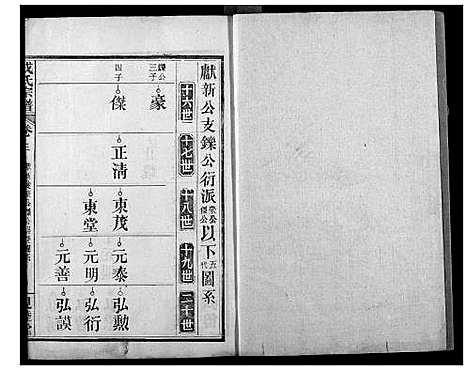 獻新公支鑠公衍派豪公傑公以下五代圖系
十六世
十七世
十八世
十九世
二十世
鑠公三子
豪
四子
傑
正清
東茂
東堂
元泰
元明
元善
弘勲
弘衍
弘謨
氏宗譜